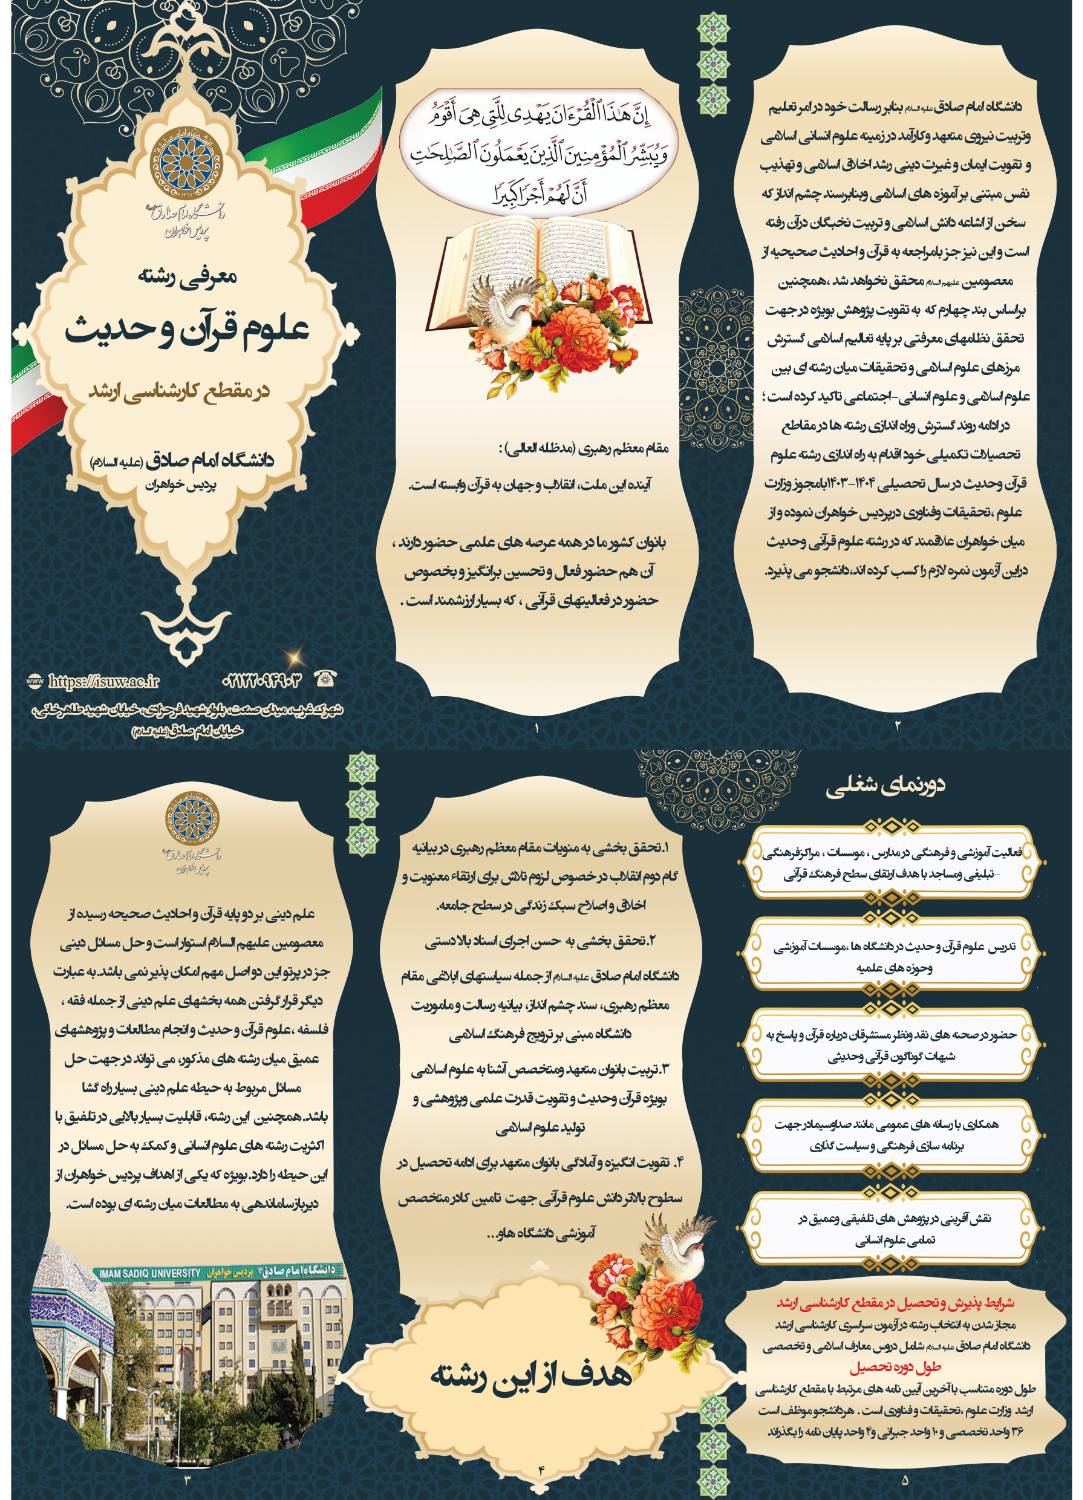 دانشگاه امام صادق علیه السلام
پردیس خواهران
معرفی رشته
علوم قرآن و حدیث
در مقطع کارشناسی ارشد
دانشگاه امام صادق (علیه السلام)
پردیس خواهران
https://isuw.ac.ir
۰۲۱۲۲۰۹۴۹۰۳
شهرک غرب، میدان صنعت، بلوار شهید فرحزادی، خیابان شهید طاهرخانی،
خیابان امام صادق (علیه السلام)
إِنَّ هَٰذَا ٱلْقُرْءَانَ يَهْدِى لِلَّتِى هِىَ أَقْوَمُ
وَيُبَشِّرُ ٱلْمُؤْمِنِينَ ٱلَّذِينَ يَعْمَلُونَ ٱلصَّٰلِحَٰتِ
أَنَّ لَهُمْ أَجْرًا كَبِيرًا
مقام معظم رهبری (مدظله العالی) :
آینده این ملت، انقلاب و جهان به قرآن وابسته است.
بانوان کشور ما در همه عرصه های علمی حضور دارند ،
آن هم حضور فعال و تحسین برانگیز و بخصوص
حضور در فعالیتهای قرآنی ، که بسیار ارزشمند است .
۱
دانشگاه امام صادق علیه السلام بنابر رسالت خود در امر تعلیم
وتربیت نیروی متعهد وکارآمد در زمینه علوم انسانی اسلامی
و تقویت ایمان و غیرت دینی رشد اخلاق اسلامی و تهذیب
نفس مبتنی بر آموزه های اسلامی وبنابرسند چشم انداز که
سخن از اشاعه دانش اسلامی و تربیت نخبگان درآن رفته
است و این نیز جز بامراجعه به قرآن و احادیث صحیحیه از
معصومین علیهم السلام محقق نخواهد شد ،همچنین
براساس بند چهارم که به تقویت پژوهش بویژه در جهت
تحقق نظامهای معرفتی بر پایه تعالیم اسلامی گسترش
مرزهای علوم اسلامی و تحقیقات میان رشته ای بین
علوم اسلامی و علوم انسانی-اجتماعی تاکید کرده است ؛
در ادامه روند گسترش وراه اندازی رشته ها در مقاطع
تحصیلات تکمیلی خود اقدام به راه اندازی رشته علوم
قرآن وحدیث در سال تحصیلی ۱۴۰۴-۱۴۰۳بامجوز وزارت
علوم ،تحقیقات وفناوری درپردیس خواهران نموده و از
میان خواهران علاقمند که در رشته علوم قرآنی وحدیث
دراین آزمون نمره لازم را کسب کرده اند،دانشجو می پذیرد.
۲
دانشگاه امام صادق علیه السلام
پردیس خواهران
علم دینی بر دو پایه قرآن و احادیث صحیحه رسیده از
معصومین علیهم السلام استوار است و حل مسائل دینی
جز در پرتو این دو اصل مهم امکان پذیر نمی باشد.به عبارت
دیگر قرار گرفتن همه بخشهای علم دینی از جمله فقه ،
فلسفه ،علوم قرآن و حدیث و انجام مطالعات و پژوهشهای
عمیق میان رشته های مذکور، می تواند در جهت حل
مسائل مربوط به حیطه علم دینی بسیار راه گشا
باشد.همچنین این رشته، قابلیت بسیار بالایی در تلفیق با
اکثریت رشته های علوم انسانی و کمک به حل مسائل در
این حیطه را دارد.بویژه که یکی از اهداف پردیس خواهران از
دیربازساماندهی به مطالعات میان رشته ای بوده است.
IMAM SADIQ UNIVERSITY دانشگاه امام صادق (ع) پردیس خواهران
۳
۱.تحقق بخشی به منویات مقام معظم رهبری در بیانیه
گام دوم انقلاب در خصوص لزوم تلاش برای ارتقاء معنویت و
اخلاق و اصلاح سبک زندگی در سطح جامعه.
۲.تحقق بخشی به حسن اجرای اسناد بالادستی
دانشگاه امام صادق علیه السلام از جمله سیاستهای ابلاغی مقام
معظم رهبری، سند چشم انداز، بیانیه رسالت و ماموریت
دانشگاه مبنی بر ترویج فرهنگ اسلامی
۳.تربیت بانوان متعهد ومتخصص آشنا به علوم اسلامی
بویژه قرآن وحدیث و تقویت قدرت علمی وپژوهشی و
تولید علوم اسلامی
۴. تقویت انگیزه و آمادگی بانوان متعهد برای ادامه تحصیل در
سطوح بالاتر دانش علوم قرآنی جهت تامین کادر متخصص
آموزشی دانشگاه هاو...
هدف از این رشته
۴
دورنمای شغلی
فعالیت آموزشی و فرهنگی در مدارس ، موسسات ، مراکزفرهنگی
-تبلیغی ومساجد با هدف ارتقای سطح فرهنگ قرآنی
تدریس علوم قرآن و حدیث در دانشگاه ها ،موسسات آموزشی
وحوزه های علمیه
حضور در صحنه های نقد ونظر مستشرقان درباره قرآن و پاسخ به
شبهات گوناگون قرآنی وحدیثی
همکاری با رسانه های عمومی مانند صداوسیمادر جهت
برنامه سازی فرهنگی و سیاست گذاری
نقش آفرینی در پژوهش های تلفیقی وعمیق در
تمامی علوم انسانی
شرایط پذیرش و تحصیل در مقطع کارشناسی ارشد
مجاز شدن به انتخاب رشته در آزمون سراسری کارشناسی ارشد
دانشگاه امام صادق علیه السلام شامل دروس معارف اسلامی و تخصصی
طول دوره تحصیل
طول دوره متناسب با آخرین آیین نامه های مرتبط با مقطع کارشناسی
ارشد وزارت علوم ،تحقیقات و فناوری است . هر دانشجو موظف است
۳۶ واحد تخصصی و ۱۰ واحد جبرانی و۴ واحد پایان نامه را بگذراند
۵